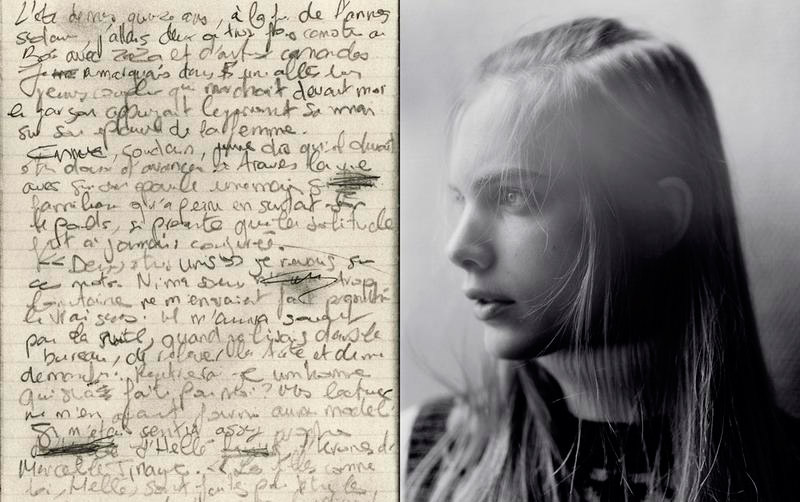 L'été de mes quinze ans, à la fin de l'année
scolaire, j'allais deux ou trois fois canoter au
Bois avec Zaza et d'autres camarades
Je remarquais dans une allée un
jeune couple qui marchait devant moi
le garçon appuyait légèrement sa main
sur son épaule de la femme.
Emue, soudain, je me dis qu'il devait
être doux d'avancer à travers la vie
avec sur son épaule une main si
familière qu'à peine en sentait-on
le poids, si présente que la solitude
fût à jamais conjurée.
« Deux êtres unis » je rêvais sur
ces mots. Ni ma sœur trop
ne m'en avaient fait pressentir
le vrai sens. Il m'arrivait souvent
quand je lisais dans le
bureau, de relever la tête et de me
demander: Rencontrerai-je un homme
qui sera fait pour moi? Mes lectures
ne m'en avaient fourni aucun modèle.
Je m'étais sentie assez proche
d'Hellé, l'héroïne de
Marcelle Tinayre. « Les filles comme
toi, Hellé, sont faites pour être les